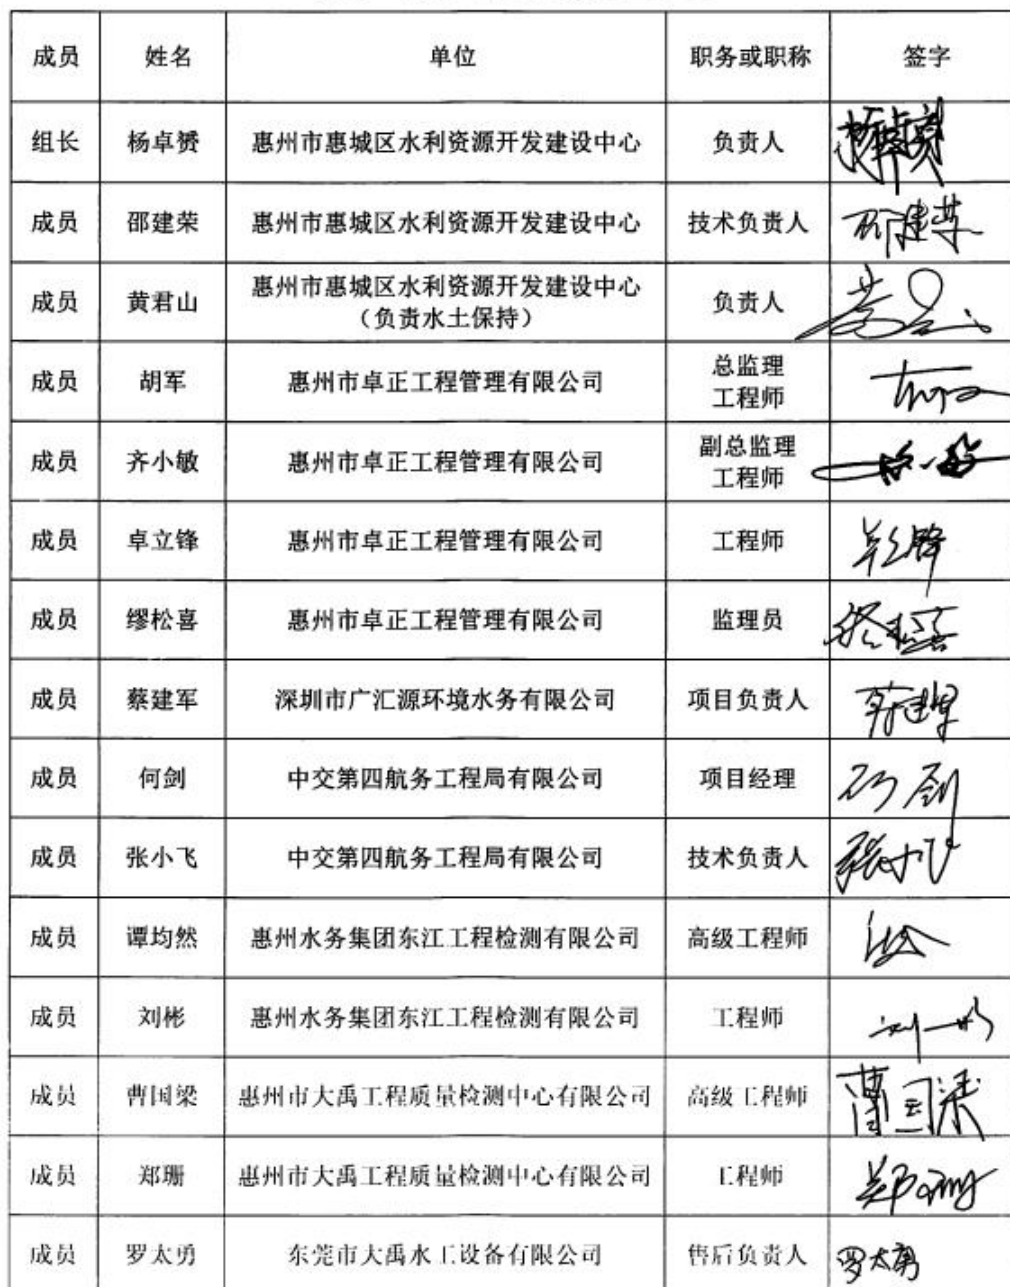 成员 姓名 单位 职务或职称 签字
组长 杨卓赟 惠州市惠城区水利资源开发建设中心 负责人
成员 邵建荣 惠州市惠城区水利资源开发建设中心 技术负责人 邵建荣
成员 黄君山 惠州市惠城区水利资源开发建设中心 负责人
（负责水土保持）
成员 胡军 惠州市卓正工程管理有限公司 总监理
工程师
成员 齐小敏 惠州市卓正工程管理有限公司 副总监理
工程师
成员 卓立锋 惠州市卓正工程管理有限公司 工程师 卓立锋
成员 缪松喜 惠州市卓正工程管理有限公司 监理员 缪松喜
成员 蔡建军 深圳市广汇源环境水务有限公司 项目负责人 蔡建军
成员 何剑 中交第四航务工程局有限公司 项目经理 何剑
成员 张小飞 中交第四航务工程局有限公司 技术负责人 张小飞
成员 谭均然 惠州水务集团东江工程检测有限公司 高级工程师
成员 刘彬 惠州水务集团东江工程检测有限公司 工程师 刘彬
成员 曹国梁 惠州市大禹工程质量检测中心有限公司 高级工程师 曹国梁
成员 郑珊 惠州市大禹工程质量检测中心有限公司 工程师 郑珊
成员 罗太勇 东莞市大禹水工设备有限公司 售后负责人 罗太勇